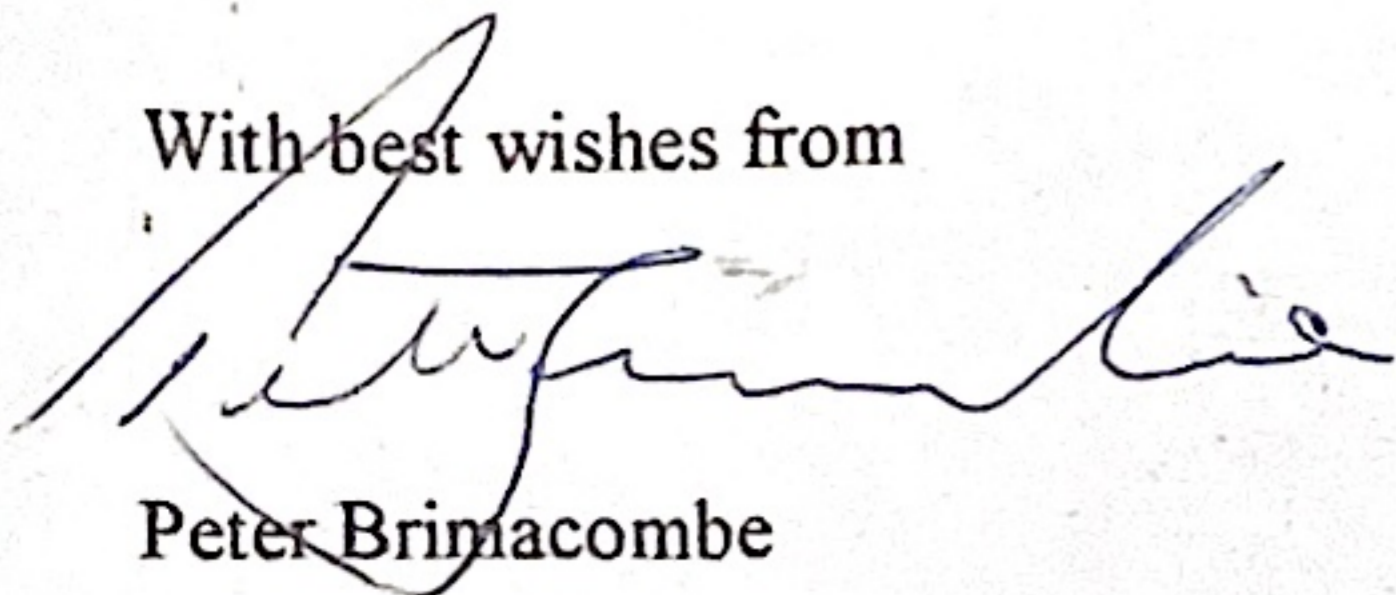 With best wishes from
Peter Brimacombe